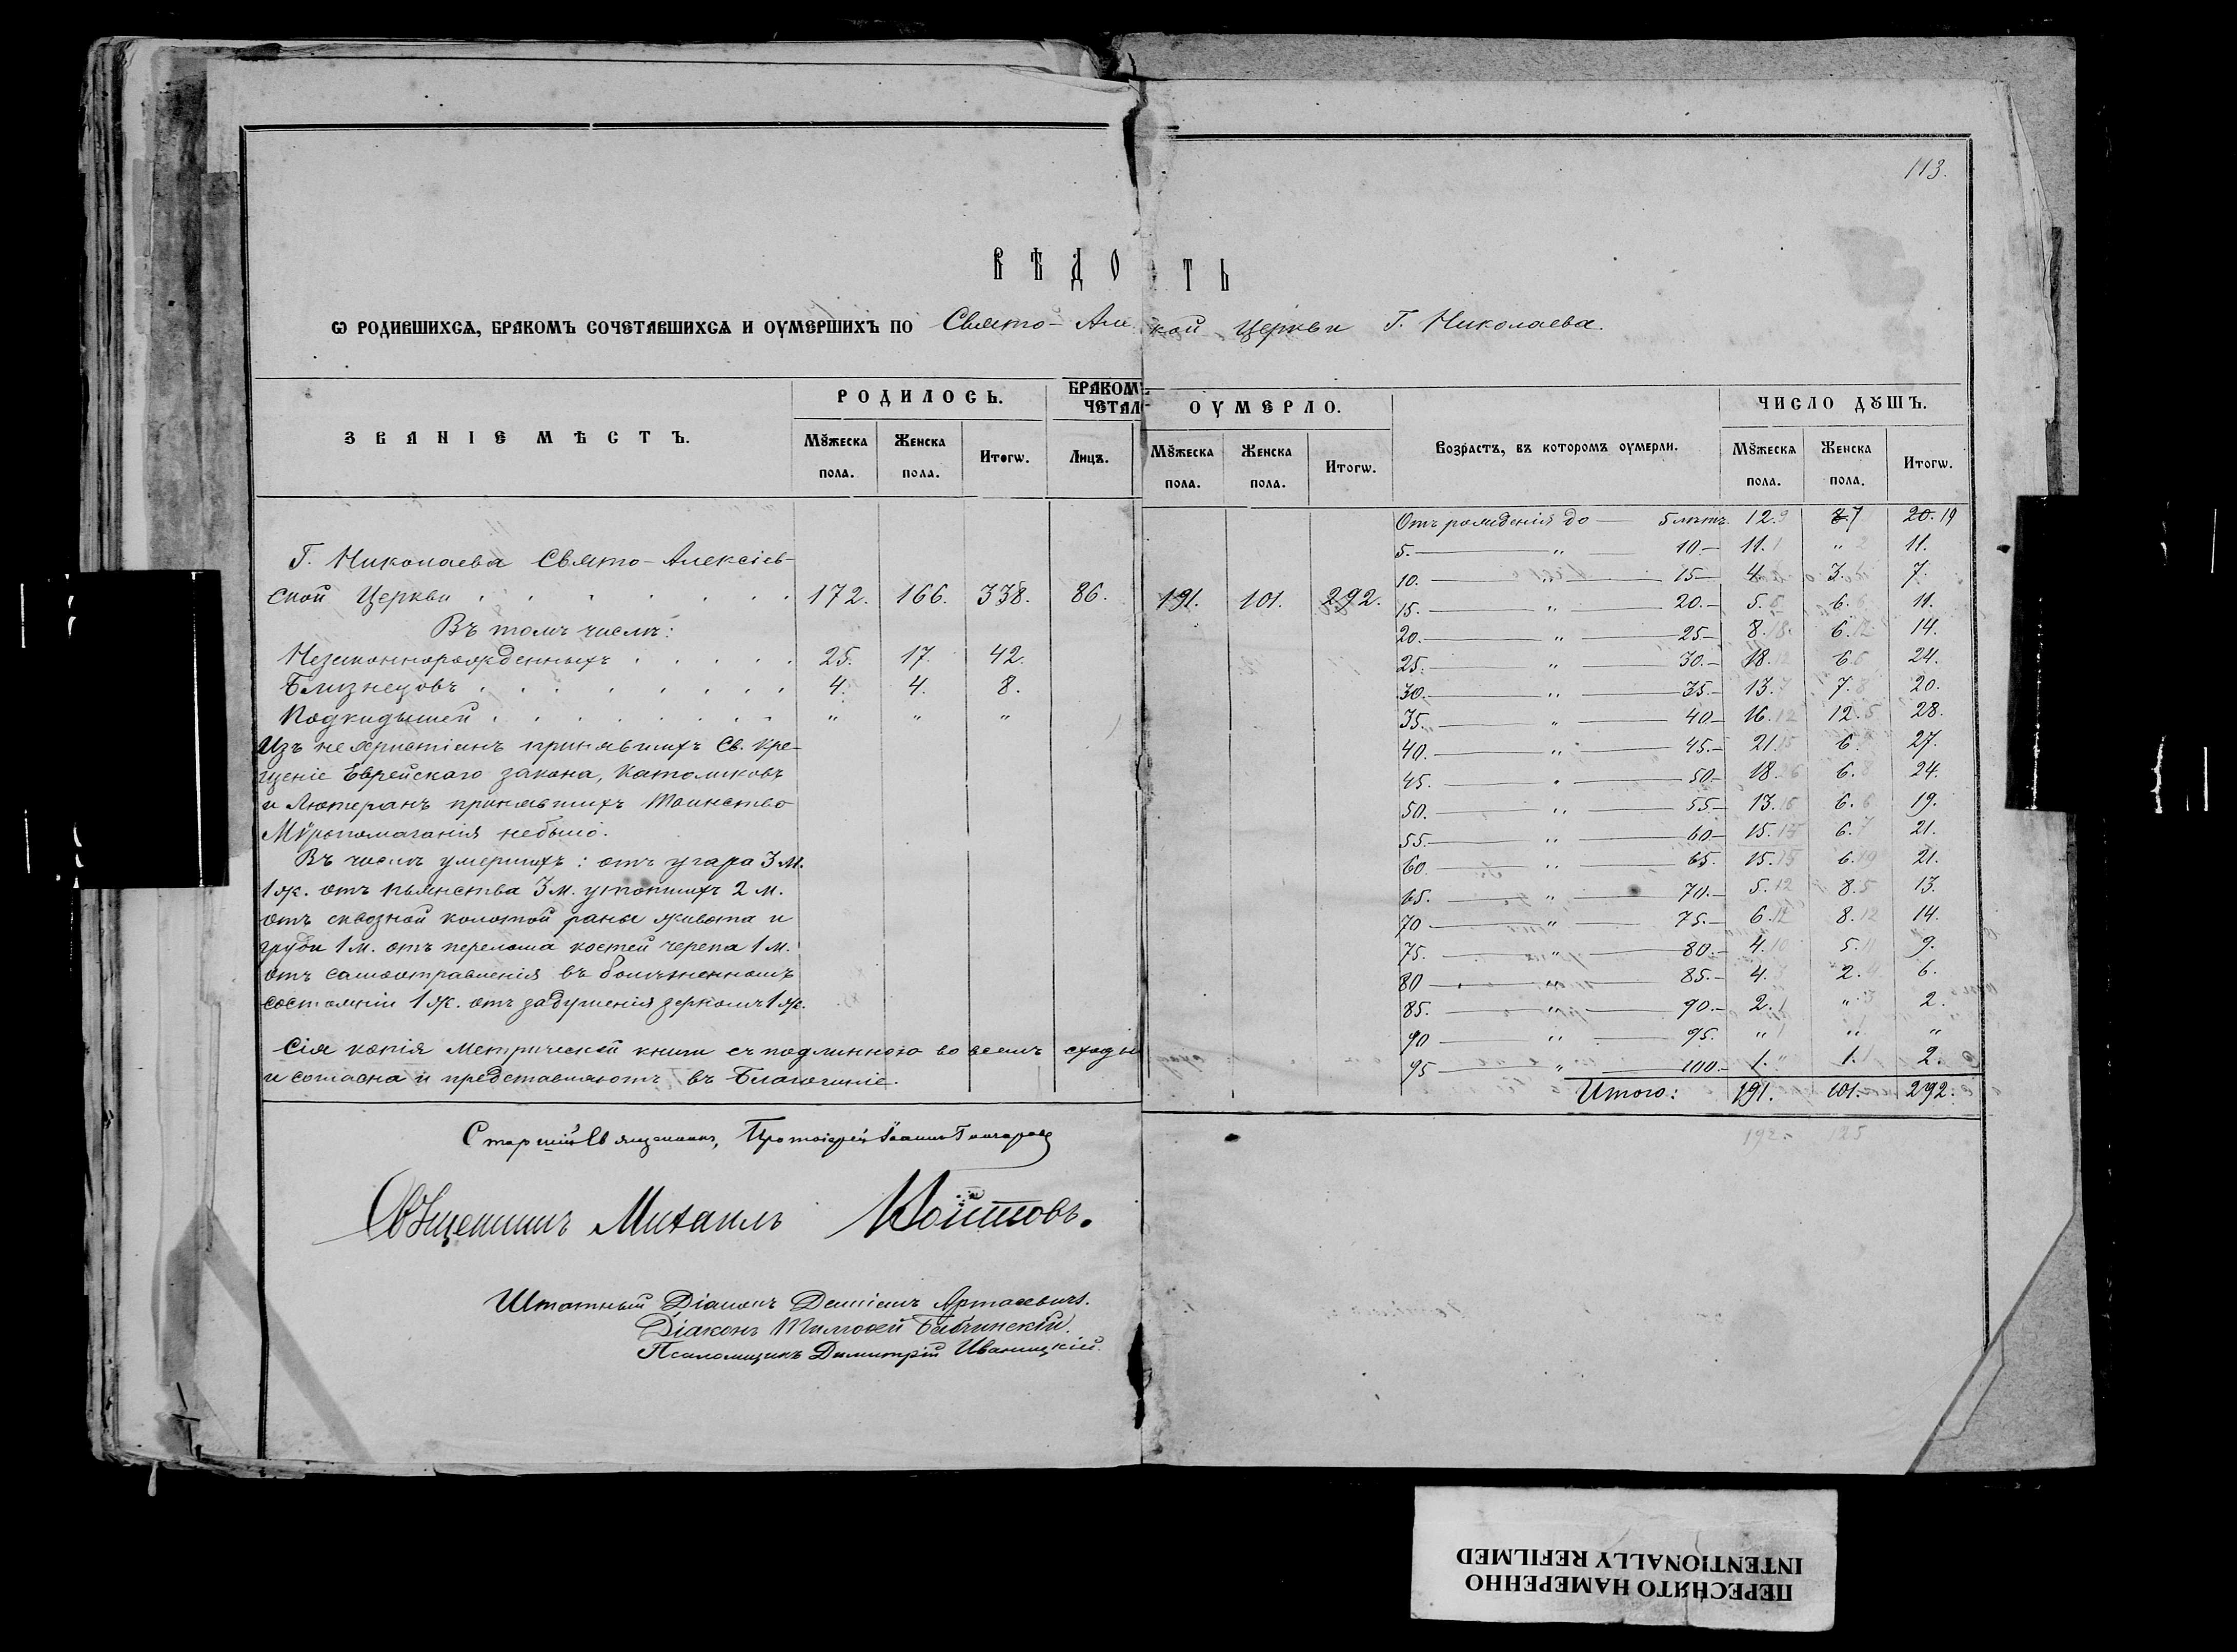 113.
ВѢДО ТЬ
Ѡ РОДИВШИХСѦ, БРАКОМЪ СОЧЕТАВШИХСѦ И ОУМЕРШИХЪ ПО Свято-Але кой Церкви Г. Николаева.
ЗВАНІЕ МѢСТЪ. РОДИЛОСЬ. БРАКОМЪ ЧЕТАЛ
Мꙋжеска пола. Женска пола. Итогѡ. Лицъ.
Г. Николаева Свято-Алексіев-
ской Церкви . . . . . . . 172. 166. 338. 86.
Въ томъ числѣ:
Незаконнорожденныхъ . . . . . 25. 17. 42.
Близнецовъ . . . . . . . . 4. 4. 8.
Подкидышей . . . . . . . . „ „ „
Изъ нехристіанъ принявшихъ Св. Кре-
щеніе Еврейскаго закона, Католиковъ
и Лютеранъ принявшихъ Таинство
Мѵропомазанія небыло.
Въ числѣ умершихъ: отъ угара 3 м.
1 ж. отъ пьянства 3 м. утопшихъ 2 м.
отъ сквозной колотой раны живота и
груди 1 м. отъ перелома костей черепа 1 м.
отъ самоотравленія въ болѣзненномъ
состояніи 1 ж. отъ задушенія 1 ж.
Сія копія Метрической книги съ подлинною во всемъ сходн
и согласна и представляютъ въ Благочиніе.
Старшій Священникъ, Протоіерей Іоаннъ Гончаровъ
Священникъ Михаилъ Войтовъ.
Штатный Діаконъ Даміанъ Артасевичъ.
Діаконъ Тимофей Бабчинскій.
Псаломщикъ Димитрій Иваницкій.
ОУМЕРЛО. Возрастъ, въ которомъ оумерли. ЧИСЛО ДꙊШЪ.
Мꙋжеска пола. Женска пола. Итогѡ. Мꙋжеска пола. Женска пола. Итогѡ.
191. 101. 292.
Отъ рожденія до — 5 лѣтъ. 12. 9 8. 7 20. 19
5. — „ — 10. — 11. 1 „ 2 11.
10. — „ — 15 — 4. 3. 7.
15. — „ — 20. — 5. 6. 11.
20. — „ — 25 — 8. 18. 6. 12 14.
25. — „ — 30. — 18. 12 6. 6 24.
30. — „ — 35. — 13. 7 7. 8 20.
35. — „ — 40 — 16. 12 12. 5 28.
40. — „ — 45. — 21. 15 6. 27.
45. — „ — 50 — 18. 6. 8 24.
50. — „ — 55 — 13. 16 6. 6 19.
55. — „ — 60 — 15. 15 6. 7 21.
60 — „ — 65. 15. 15 6. 19 21.
65. — „ — 70. — 5. 12 8. 5 13.
70 — „ — 75. — 6. 12 8. 12 14.
75. — „ — 80. — 4. 10 5. 11 9.
80 — „ — 85. — 4. 2. 6.
85. — „ — 90. — 2. 1 „ 3 2.
90 — „ — 95. „ 1 „ „
95 — „ — 100. — 1. 1. 2.
Итого: 191. 101. 292.
192. 125
ПЕРЕСНЯТО НАМЕРЕННО
INTENTIONALLY REFILMED